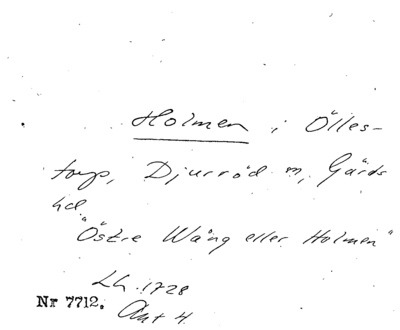 Holmen i Ölles-
torp, Djurröd m, Gärds
hd.
"Östre Wång eller Holmen"
Lh. 1728
Nr 7712. Akt 4.